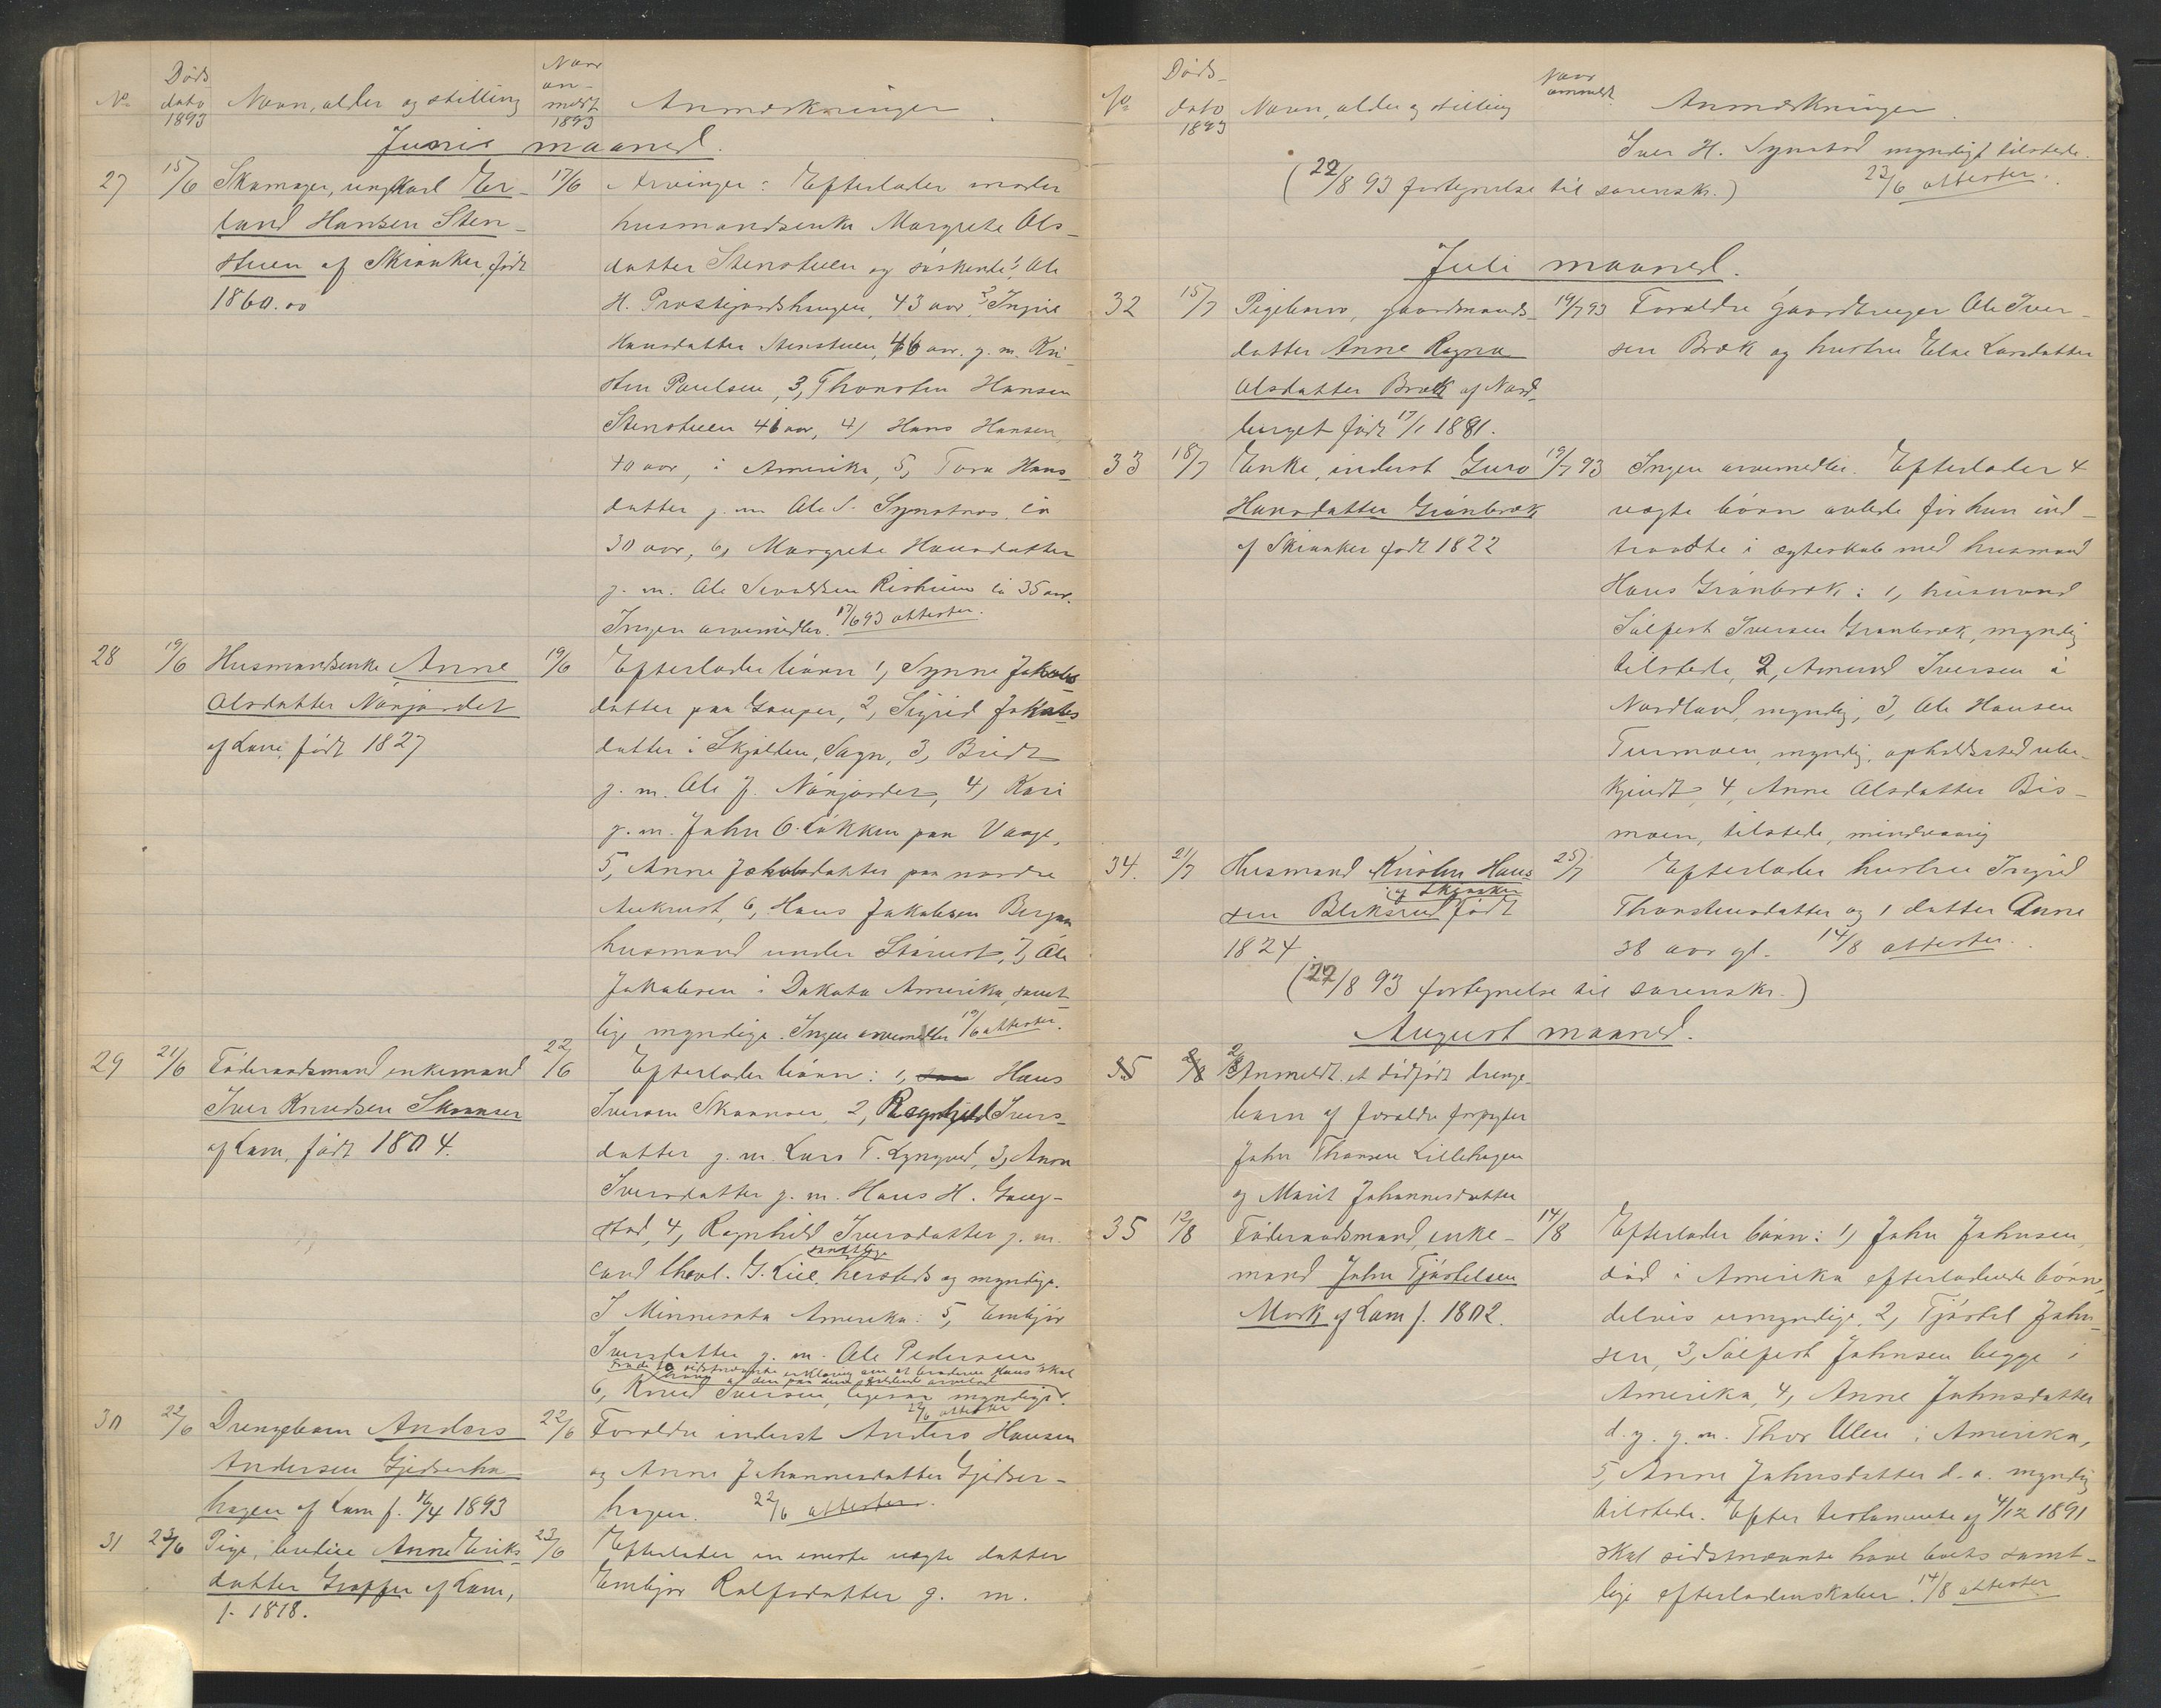 No Dødsdato 1893 Navn, alder og stilling Naar anmeldt 1893 Anmærkninger.
Juni maaned.
27 15/6 Skomager, ungkarl Er-
land Hansen Sten-
stuen af Skiaaker, født
1860.00
17/6 Arvinger: Efterlader moder
husmandsenke Margrete Ols-
datter Stenstuen og søskende: Ole
H. Prestejordshaugen, 43 aar, 2, Ingrid
Hansdatter Stenstuen, 46 aar. g. m. Kri-
sten Paulsen, 3, Thorsten Hansen
Stenstuen 41 aar, 4) Hans Hansen,
40 aar, i Amerika, 5, Tora Hans-
datter g. m. Ole S. Synstnes, ca
30 aar, 6, Margrete Hansdatter
g. m. Ole Sevaldsen Risheim ca 35 aar.
Ingen arvemidler. 17/6 93 attester.
28 19/6 Husmandsenke Anne
Olsdatter Nørjordet
af Lom, født 1827
19/6 Efterlader børn 1, Synne Jakobs-
datter paa Gaupar, 2, Sigrid Jakobs-
datter i Skjolden, Sogn, 3, Bridt
g. m. Ole J. Nørjordet, 4, Kari
g. m. Jahn O. Løkken paa Vaage,
5, Anne Jakobsdatter paa nordre
Aukrust, 6, Hans Jakobsen Bergom
husmand under Storust, 7, Ole
Jakobsen i Dakota Amerika, samt-
lige myndige. Ingen arvemidler 19/6 attester.
29 21/6 Føderaadsmand enkemand
Iver Knudsen Skaansar
af Lom, født 1804.
22/6 Efterlader børn: 1, Hans
Iversen Skaansar, 2, Ragnhild Ivers-
datter g. m. Lars T. Lyngved, 3, Anna
Iversdatter g. m. Hans H. Gaup-
stad, 4, Ragnhild Iversdatter g. m.
cand theol. G. Lie. samtlige hersteds og myndige.
I Minnesota Amerika: 5, Embjør
Iversdatter g. m. Ole Pedersen
6, Knud Iversen, ligesaa myndige.
22/6 attester
30 22/6 Drengebarn Anders
Andersen Gjeisarha
haugen af Lom f. 16/4 1893
22/6 Forældre inderst Anders Hansen
og Anne Johannesdatter Gjeisar-
haugen. 22/6 attester.
31 23/6 Pige, Anne Eriks-
datter Graffer af Lom,
f. 1818.
23/6 Efterlader en eneste uægte datter
Embjør Rolfsdatter g. m.
No Dødsdato 1893 Navn, alder og stilling Naar anmeldt. Anmærkninger.
Iver H. Synstad myndigt tilstede.
(22/8 93 fortegnelse til sorenskr.) 23/6 attester.
Juli maaned.
32 15/7 Pigebarn, gaardmands-
datter Anne Ragna
Olsdatter Bræk af Nord-
berget født 17/1 1881.
19/7 93 Forældre gaardbruger Ole Iver-
sen Bræk og hustru Elne Larsdatter
33 18/7 Enke, inderst Guro
Hansdatter Grønbræk
af Skiaaker født 1822
19/7 93 Ingen arvemidler. Efterlader 4
uægte børn avlede før hun ind-
traadte i ægteskab med husmand
Hans Grønbræk: 1, husmand
Sølfest Iversen Grønbræk, myndig
tilstede, 2, Amund Iversen i
Nordland, myndig, 3, Ole Hansen
Turmoen, myndig, opholdssted ube-
kjendt, 4, Anne Olsdatter Bis-
moen, tilstede, mindreaarig
34. 21/7 Husmand Kristen Han-
sen Bleksrud af Skiaaker født
1824.
25/7 Efterlader hustru Ingrid
Thorstensdatter og 1 datter Anne
38 aar gl. 14/8 attester.
(22/8 93 fortegnelse til sorenskr.)
August maaned.
35 2/8 Anmeldt et dødfødt drenge-
barn af forældre forpagter
Jahn Thorsen Lillehagen
og Marit Johannesdatter
35 12/8 Føderaadsmand, enke-
mand Jahn Tjøstelsen
Mork af Lom f. 1802.
14/8 Efterlader børn: 1, Jahn Jahnsen,
død i Amerika efterladende børn,
delvis umyndige, 2, Tjøstel Jahn-
sen, 3, Sølfest Jahnsen begge i
Amerika, 4, Anne Jahnsdatter
d. y. g. m. Thor Ulen i Amerika,
5, Anne Jahnsdatter d. æ. myndig
tilstede. Efter testamente af 4/12 1891
skal sidstnævnte have boets samt-
lige efterladenskaber. 14/8 attester